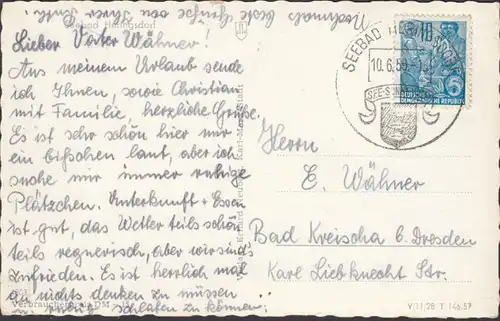 Nochmals beste Grüße von Ihrer Ruth
Seebad Heringsdorf
Lieber Vater Wähner!
Aus meinem Urlaub sende
ich Ihnen, sowie Christian
mit Familie, herzliche Grüße.
Es ist sehr schön hier nur
ein bißchen laut, aber ich
suche mir immer ruhige
Plätzchen. Unterkunft + Essen
ist gut, das Wetter teils schön
teils regnerisch, aber wir sind
zufrieden. Es ist herrlich mal
an nichts denken zu müssen
u. schlafen zu können.
Verbraucherpreis DM
Karl-Marx-Stadt
SEEBAD HERINGSDORF
10.6.59
10
DEUTSCHE
DEMOKRATISCHE REPUBLIK
Herrn
E. Wähner
Bad Kreischa b. Dresden
Karl Liebknecht Str.
V 11/28 T 146 57